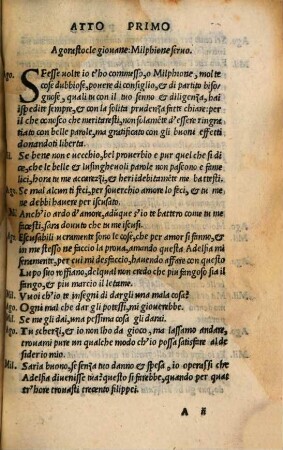 ATTO PRIMO
Agonestocle giouane. Milphione seruo.
Ago. SPesse uolte io t'ho commesso, o Milphione, molte
cose dubbiose, pouere di consiglio, & di partito biso-
gnose, quali tu con il tuo senno & diligenza, hai
ispedite sempre, & con la solita prudenza fatte chiare per
il che conosco che meritaresti, non solamente d'essere ringra
tiato con belle parole, ma gratificato con gli buoni effetti
donandoti liberta.
Mil. Se bene non è uecchio, bel prouerbio è pur quel che si di
ce, che le belle & lusingheuoli parole non pascono e fame
lici, hora tu me accarezi, & heri debitamente me battesti.
Ago. Se mal alcun ti feci, per souerchio amore lo feci, & tu me
ne debbi hauere per iscusato.
M. Anch'io ardo d'amore, adūque s'io te battero come tu me
facesti, sara douuto che tu me iscusi.
Ago. Escusabili ueramente sono le cose, che per amor si fanno, &
in me stesso ne faccio la proua, amando questa Adelfia mi
seramente, per cui mi desfaccio, hauendo affare con questo
Lupo suo roffiano, delqual non credo che piu fangoso sia il
fango, & piu marcio il letame.
Mil. Vuoi ch'io te insegni di dargli una mala cosa?
Ago. Ogni mal che dar gli potessi, mi giouerebbe.
Mil. Se me gli dai, una pessima cosa gli darai.
Ago. Tu scherzi, & io non lho da gioco, ma lassamo andare,
trouami pure un qualche modo ch'io possa satisfare al de
siderio mio.
Mil. Saria buono, se senza tuo danno & spesa, io operassi che
Adelfia diuenisse tua? questo si farebbe, quando per qual
tr'hore trouasti trecento filippei.
A ii